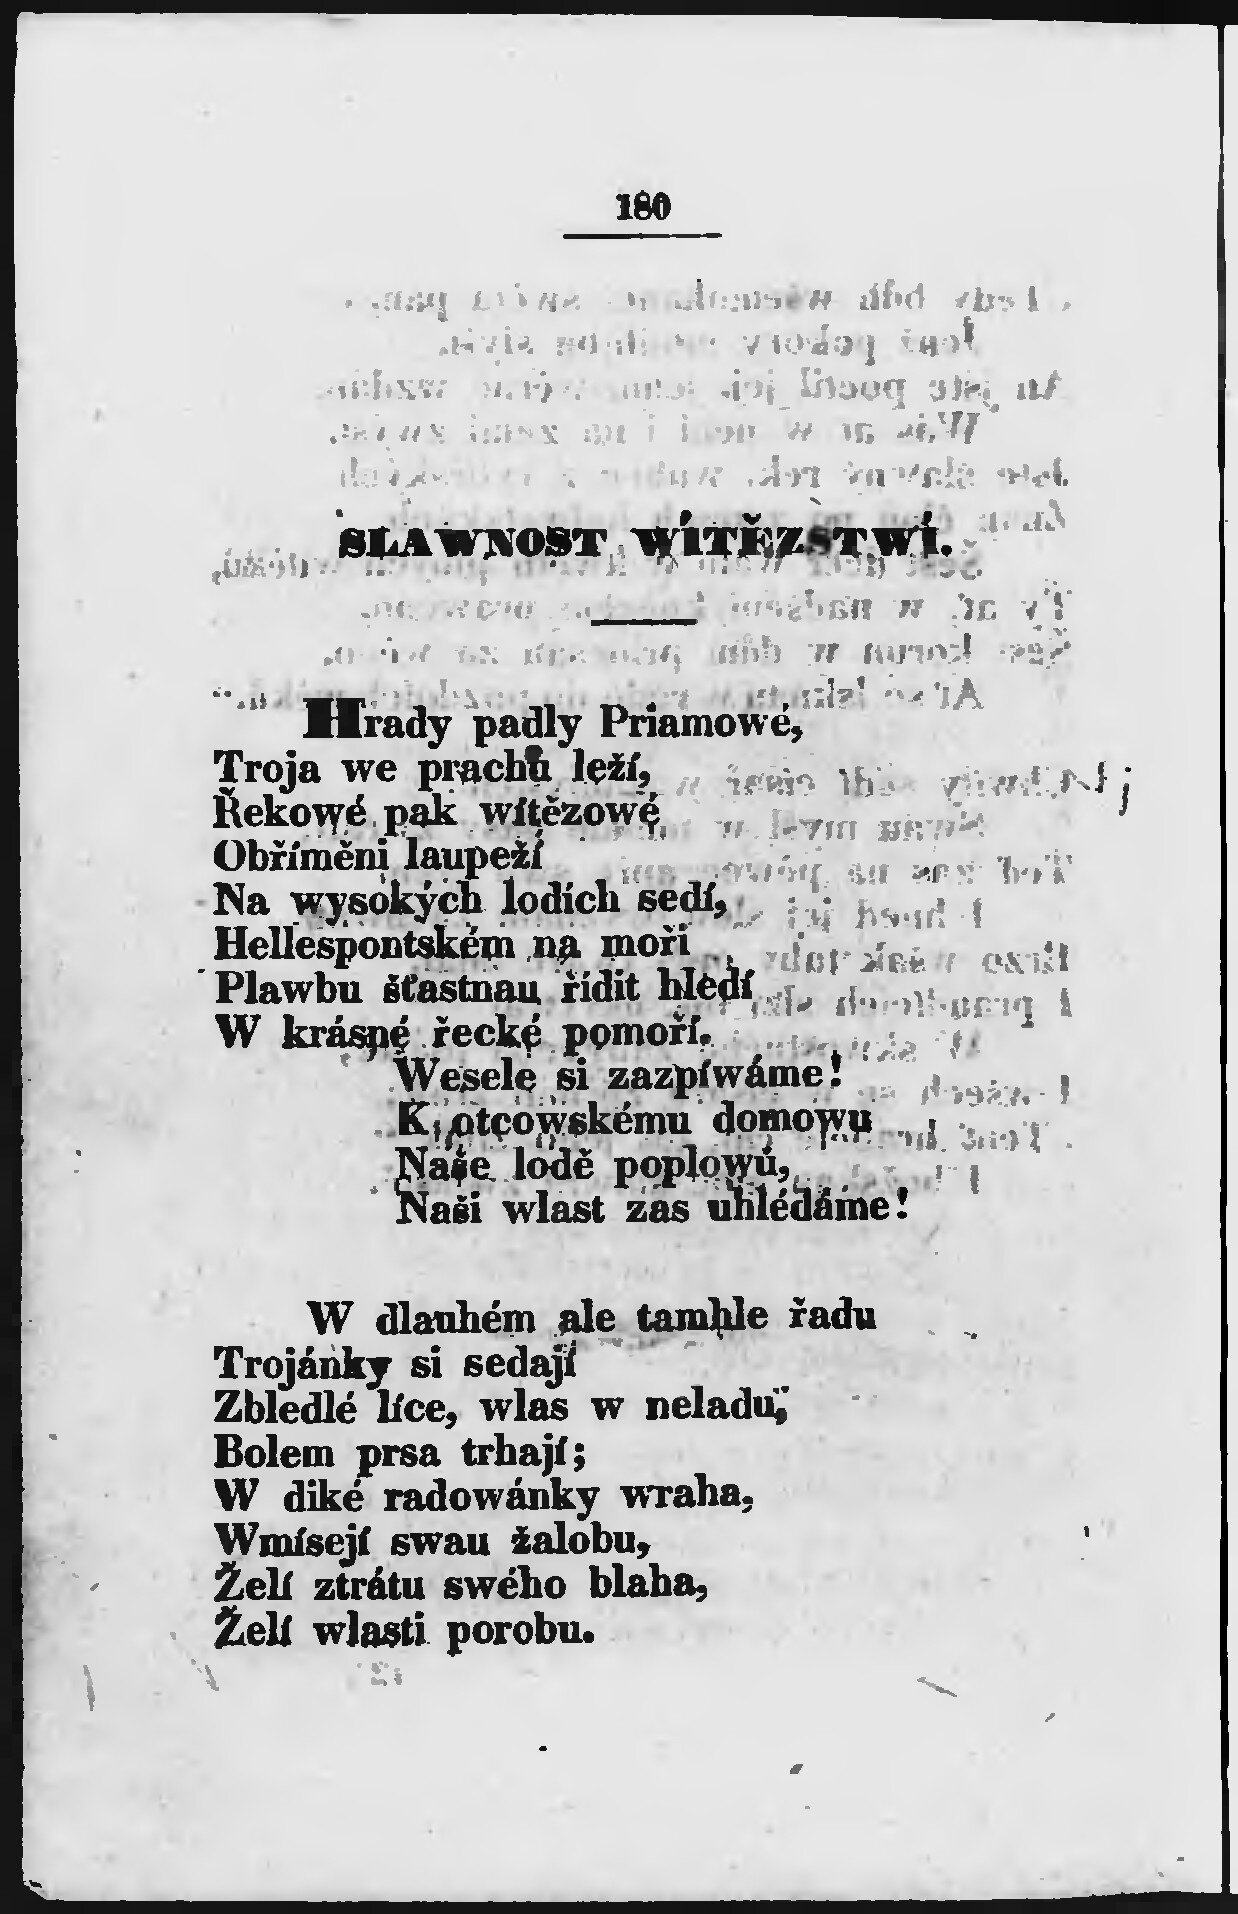 180
SLAWNOST WÍTĚZSTWÍ.
Hrady padly Priamowé,
Troja we prachu leží,
Řekowé pak wítězowé
Obříměni laupeží
Na wysokých lodích sedí,
Hellespontském na moři
Plawbu šťastnau řídit hledí
W krásné řecké pomoří.
Wesele si zazpíwáme!
K otcowskému domowu
Naše lodě poplowú,
Naši wlast zas uhlédáme!
W dlauhém ale tamhle řadu
Trojánky si sedají
Zbledlé líce, wlas w neladu,
Bolem prsa trhají;
W diké radowánky wraha,
Wmísejí swau žalobu,
Želí ztrátu swého blaha,
Želí wlasti porobu.